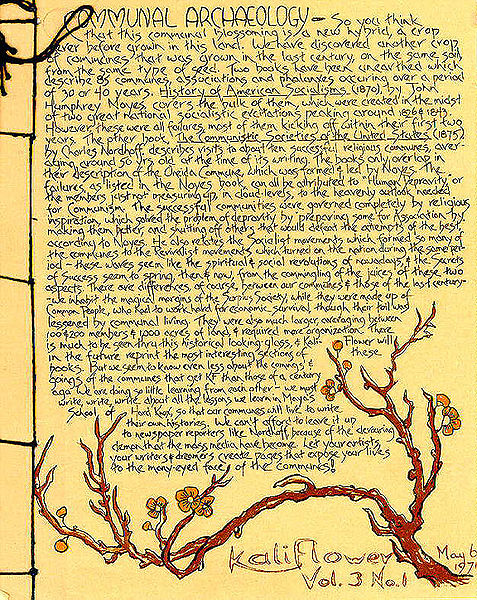 COMMUNAL ARCHAEOLOGY — So you think
that this communal blossoming is a new hybrid, a crop
never before grown in this land. We have discovered another crop
of communes that was grown in the last century on the same soil,
from the same type of seed. Two books have been unearthed which
describe communes, associations and phalanxes occuring over a period
of 30 or 40 years. History of American Socialisms (1870), by John
Humphrey Noyes, covers the bulk of them, which were created in the midst
of two great national socialistic excitations peaking around 1826 & 1843.
However these were all failures, most of them kicking off within their first two
years. The other book, The Communistic Societies of the United States (1875)
by Charles Nordhoff describes visits to about ten successful religious communes, aver-
aging around 50 yrs old at the time of its writing. The books only overlap in
their description of the Oneida Commune, which was formed & led by Noyes. The
failures as listed in the Noyes book, can all be attributed to "Human Depravity," or
the members just not measuring up, in cloud levels, to the heavenly outlook needed
for Communism. The successful communities were governed completely by religious
inspiration, which solved the problem of depravity by preparing some for Association by
making them better, and shutting off others that would defeat the attempts of the best,
according to Noyes. He also relates the Socialist movements which formed so many of
the communes to the Revivalist movements which turned on the nation during the same per-
iod — these waves seem like the spiritual & social revolutions of nowadays, & the secrets
of Success seem to spring, then & now, from the commingling of the juices of these two
aspects. There are differences, of course, between our communes & those of the last century-
- we inhabit the magical margins of the Surplus Society, while they were made up of
Common People, who had to work hard for economic survival though their toil was
lessened by communal living. They were also much larger, averaging between
100 & 200 members & 1,000 acres of land, & required more organization. There
is much to be seen thru this historical looking-glass, & Kali- Flower will
in the future reprint the most interesting sections of these
books. But we seem to know even less about the comings &
goings of the communes that get KF than those of a century
ago. We are doing so little learning from each other — we must
write, write, write about all the lessons we learn in Maya's
School of Hard Knox, so that our communes will live to write
their own histories. We can't afford to leave it up
to newspaper reporters like Nordhoff, because of the devouring
demon that the mass media have become. Let your artists,
your writers & dreamers create pages that expose your lives
to the many-eyed face of the communes!
Kaliflower
Vol. 3 No. 1
May 6
1971